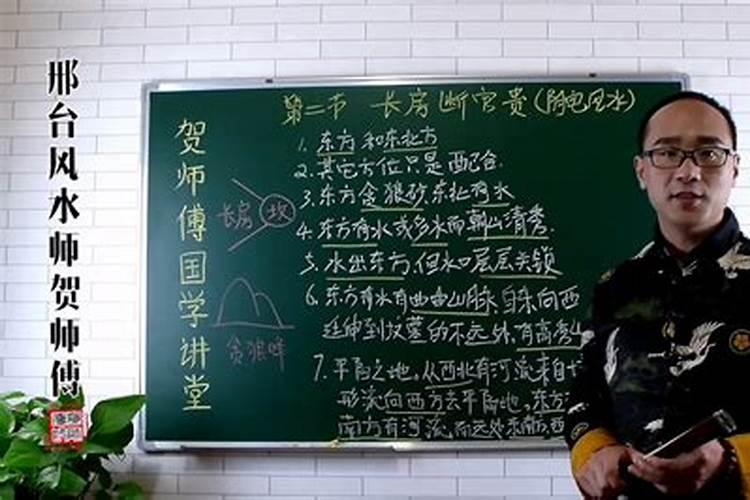 邢台风水师贺师傅
贺师傅国学讲堂
第二节 长房断官贵(阴宅风水)
1. 东方和东北方
2. 其它方位只是配合.
3. 东方贪狼砂,东北有水
4. 东方有水或多水而朝山清秀.
5. 水出东方,但水口层层关锁
6. 东方有水有曲曲山脉,自东向西
延伸到坟墓的不远处,有高秀山
7. 平原之地,从西北有河流来自
形流向西方去平原地,东方
南方有河流,而远处东南,西
长房
坟
贪狼峰